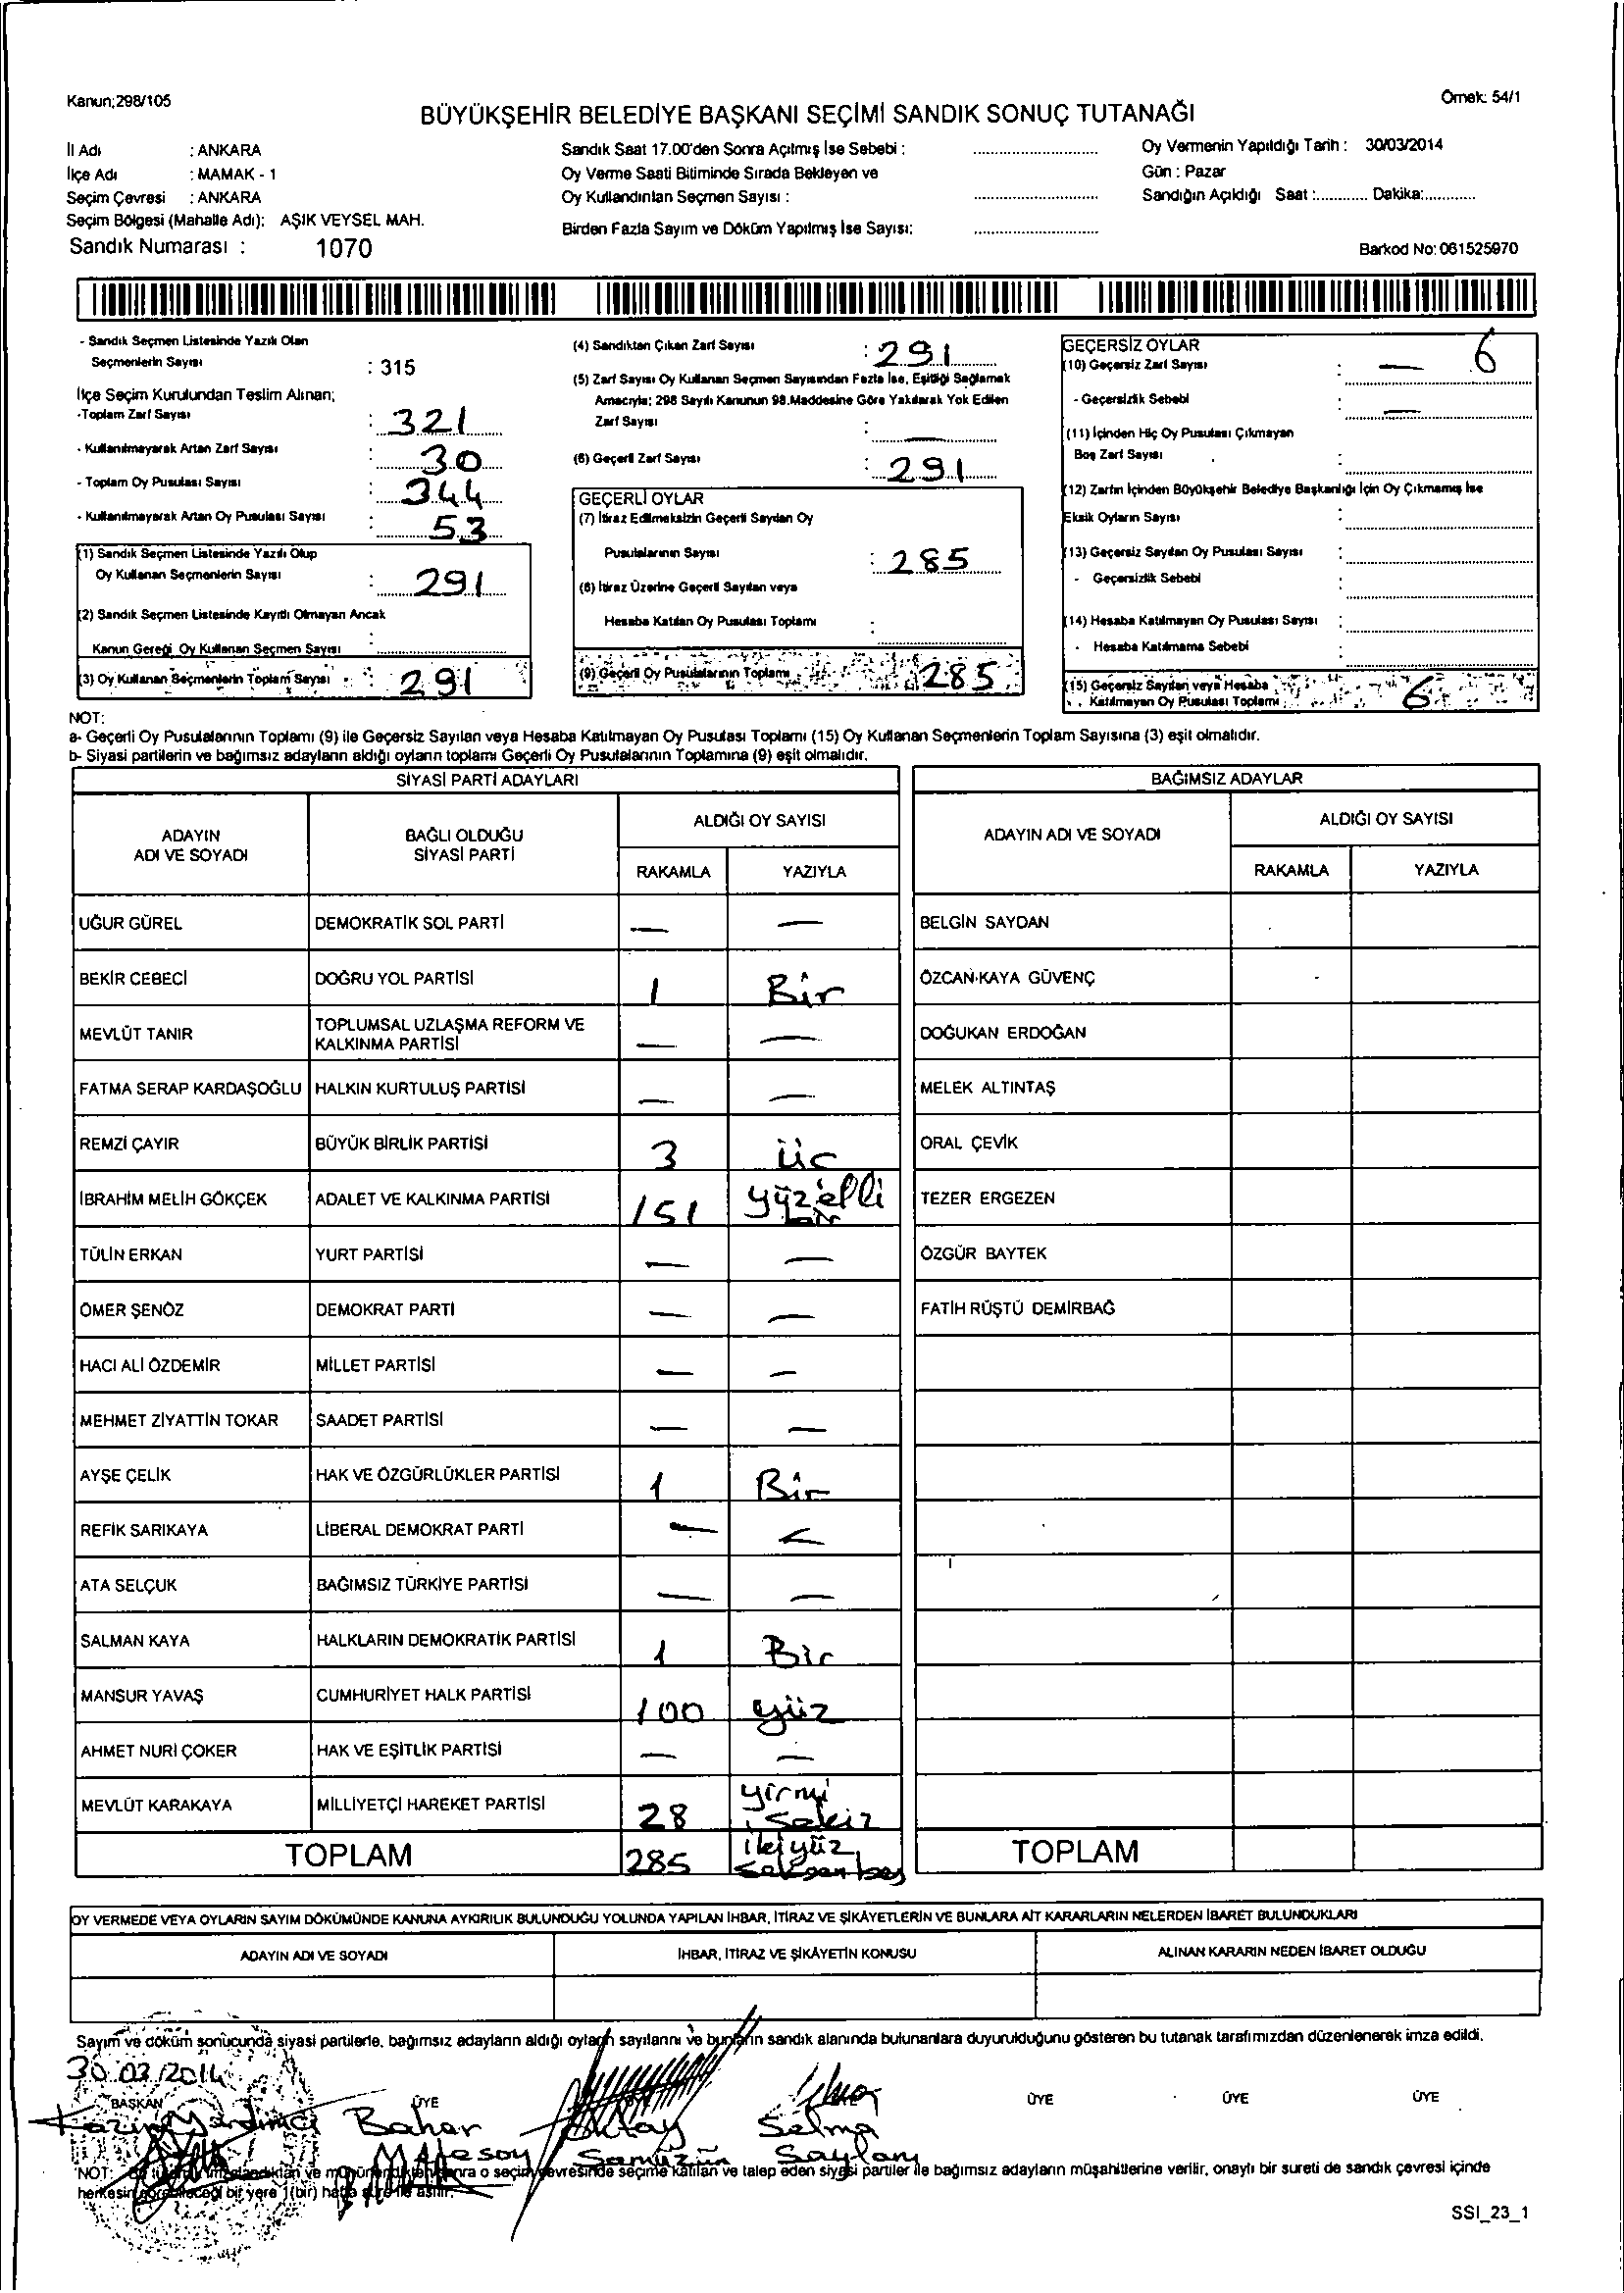 Kanun;298/105
Örnek: 54/1
BÜYÜKŞEHİR BELEDİYE BAŞKANI SEÇİMİ SANDIK SONUÇ TUTANAĞI
İl Adı : ANKARA
İlçe Adı : MAMAK - 1
Seçim Çevresi : ANKARA
Seçim Bölgesi (Mahalle Adı): AŞIK VEYSEL MAH.
Sandık Numarası : 1070
Sandık Saat 17.00'den Sonra Açılmış İse Sebebi :
Oy Verme Saati Bitiminde Sırada Bekleyen ve
Oy Kullandırılan Seçmen Sayısı :
Birden Fazla Sayım ve Döküm Yapılmış İse Sayısı:
Oy Vermenin Yapıldığı Tarih : 30/03/2014
Gün : Pazar
Sandığın Açıldığı Saat :............ Dakika:.............
Barkod No: 061525970
- Sandık Seçmen Listesinde Yazılı Olan
Seçmenlerin Sayısı : 315
İlçe Seçim Kurulundan Teslim Alınan;
-Toplam Zarf Sayısı : 321
- Kullanılmayarak Artan Zarf Sayısı : 30
- Toplam Oy Pusulası Sayısı : 344
- Kullanılmayarak Artan Oy Pusulası Sayısı : 53
(1) Sandık Seçmen Listesinde Yazılı Olup
Oy Kullanan Seçmenlerin Sayısı : 291
(2) Sandık Seçmen Listesinde Kayıtlı Olmayan Ancak
Kanun Gereği Oy Kullanan Seçmen Sayısı :
(3) Oy Kullanan Seçmenlerin Toplam Sayısı : 291
(4) Sandıktan Çıkan Zarf Sayısı : 291
(5) Zarf Sayısı Oy Kullanan Seçmen Sayısından Fazla İse, Eşitliği Sağlamak
Amacıyla; 298 Sayılı Kanunun 98.Maddesine Göre Yakılarak Yok Edilen
Zarf Sayısı : —
(6) Geçerli Zarf Sayısı : 291
GEÇERLİ OYLAR
(7) İtiraz Edilmeksizin Geçerli Sayılan Oy
Pusulalarının Sayısı : 285
(8) İtiraz Üzerine Geçerli Sayılan veya
Hesaba Katılan Oy Pusulası Toplamı :
(9) Geçerli Oy Pusulalarının Toplamı : 285
GEÇERSİZ OYLAR
(10) Geçersiz Zarf Sayısı : — 6
- Geçersizlik Sebebi : —
(11) İçinden Hiç Oy Pusulası Çıkmayan
Boş Zarf Sayısı :
(12) Zarfın İçinden Büyükşehir Belediye Başkanlığı İçin Oy Çıkmamış İse
Eksik Oyların Sayısı :
(13) Geçersiz Sayılan Oy Pusulası Sayısı :
- Geçersizlik Sebebi :
(14) Hesaba Katılmayan Oy Pusulası Sayısı :
- Hesaba Katılmama Sebebi :
(15) Geçersiz Sayılan veya Hesaba
Katılmayan Oy Pusulası Toplamı : 6
NOT:
a- Geçerli Oy Pusulalarının Toplamı (9) ile Geçersiz Sayılan veya Hesaba Katılmayan Oy Pusulası Toplamı (15) Oy Kullanan Seçmenlerin Toplam Sayısına (3) eşit olmalıdır.
b- Siyasi partilerin ve bağımsız adayların aldığı oyların toplamı Geçerli Oy Pusulalarının Toplamına (9) eşit olmalıdır.
SİYASİ PARTİ ADAYLARI
ADAYIN ADI VE SOYADI BAĞLI OLDUĞU SİYASİ PARTİ ALDIĞI OY SAYISI
RAKAMLA YAZIYLA
UĞUR GÜREL DEMOKRATİK SOL PARTİ — —
BEKİR CEBECİ DOĞRU YOL PARTİSİ 1 Bir
MEVLÜT TANIR TOPLUMSAL UZLAŞMA REFORM VE KALKINMA PARTİSİ — —
FATMA SERAP KARDAŞOĞLU HALKIN KURTULUŞ PARTİSİ — —
REMZİ ÇAYIR BÜYÜK BİRLİK PARTİSİ 3 üç
İBRAHİM MELİH GÖKÇEK ADALET VE KALKINMA PARTİSİ 151 yüzelli bir
TÜLİN ERKAN YURT PARTİSİ — —
ÖMER ŞENÖZ DEMOKRAT PARTİ — —
HACI ALİ ÖZDEMİR MİLLET PARTİSİ — —
MEHMET ZİYATTİN TOKAR SAADET PARTİSİ — —
AYŞE ÇELİK HAK VE ÖZGÜRLÜKLER PARTİSİ 1 Bir
REFİK SARIKAYA LİBERAL DEMOKRAT PARTİ — —
ATA SELÇUK BAĞIMSIZ TÜRKİYE PARTİSİ — —
SALMAN KAYA HALKLARIN DEMOKRATİK PARTİSİ 1 Bir
MANSUR YAVAŞ CUMHURİYET HALK PARTİSİ 100 yüz
AHMET NURİ ÇOKER HAK VE EŞİTLİK PARTİSİ — —
MEVLÜT KARAKAYA MİLLİYETÇİ HAREKET PARTİSİ 28 yirmi sekiz
TOPLAM 285 ikiyüz seksenbeş
BAĞIMSIZ ADAYLAR
ADAYIN ADI VE SOYADI ALDIĞI OY SAYISI
RAKAMLA YAZIYLA
BELGİN SAYDAN
ÖZCAN KAYA GÜVENÇ
DOĞUKAN ERDOĞAN
MELEK ALTINTAŞ
ORAL ÇEVİK
TEZER ERGEZEN
ÖZGÜR BAYTEK
FATİH RÜŞTÜ DEMİRBAĞ
TOPLAM
OY VERMEDE VEYA OYLARIN SAYIM DÖKÜMÜNDE KANUNA AYKIRILIK BULUNDUĞU YOLUNDA YAPILAN İHBAR, İTİRAZ VE ŞİKÂYETLERİN VE BUNLARA AİT KARARLARIN NELERDEN İBARET BULUNDUKLARI
ADAYIN ADI VE SOYADI İHBAR, İTİRAZ VE ŞİKÂYETİN KONUSU ALINAN KARARIN NEDEN İBARET OLDUĞU
Sayım ve döküm sonucunda siyasi partilerle, bağımsız adayların aldığı oyların sayılarını ve bunların sandık alanında bulunanlara duyurulduğunu gösteren bu tutanak tarafımızdan düzenlenerek imza edildi.
30.03.2014
BAŞKAN ÜYE ÜYE ÜYE ÜYE
Bahar Oktay Selma
Samüzün Saylan
NOT: Bu tutanak imzalandıktan ve mühürlendikten sonra o seçim çevresinde seçime katılan ve talep eden siyasi partiler ile bağımsız adayların müşahitlerine verilir, onaylı bir sureti de sandık çevresi içinde
herkesin görebileceği bir yere 1(bir) hafta süre ile asılır.
SSI_23_1